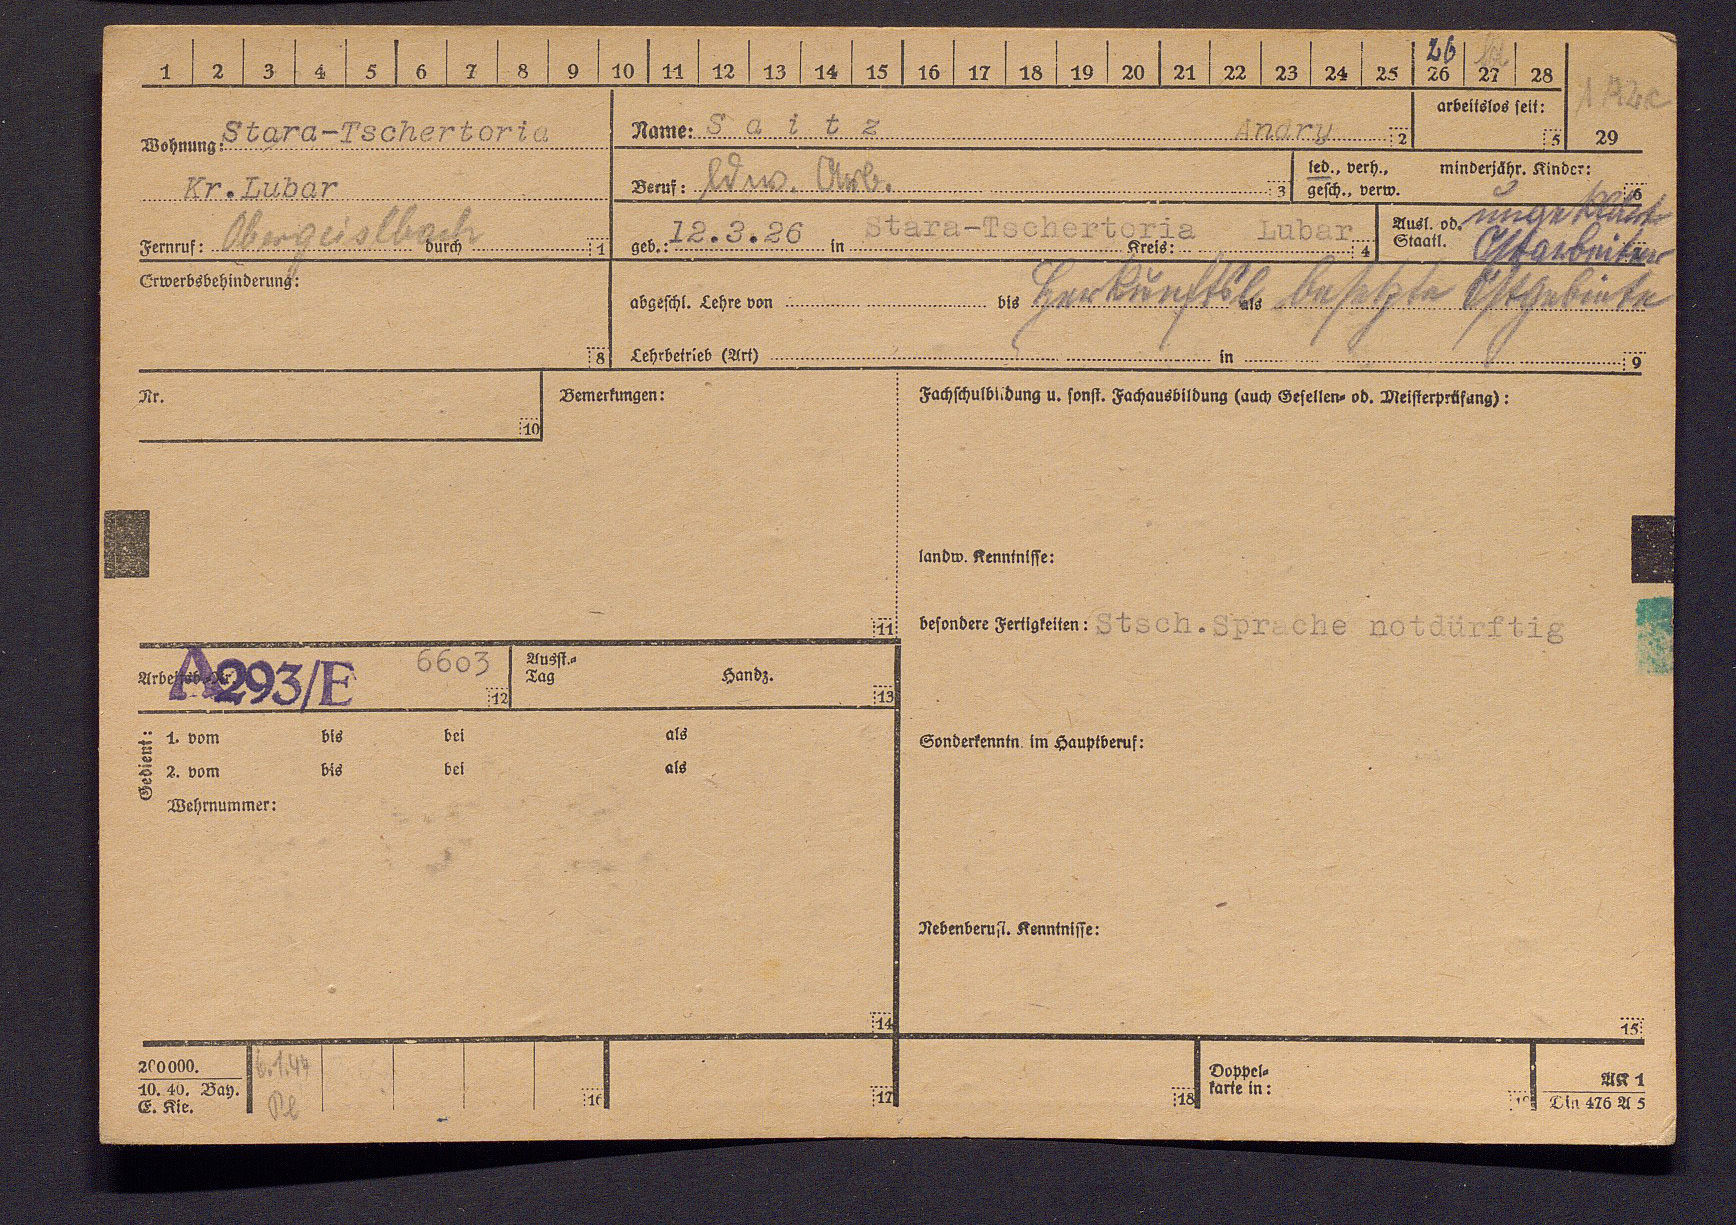 26
1 2 3 4 5 6 7 8 9 10 11 12 13 14 15 16 17 18 19 20 21 22 23 24 25 26 27 28
29
Wohnung: Stara-Tschertoria
Kr. Lubar
Fernruf: Obergeislbach durch 1
Name: Saitz Andry 2
arbeitslos seit: 5
Beruf: ldw. Arb. 3
led., verh., gesch., verw.
minderjähr. Kinder: 6
geb.: 12.3.26 in Stara-Tschertoria Kreis: Lubar 4
Ausl. od. Staatl. ungeklärt
Ostarbeiter
Erwerbsbehinderung: 8
abgeschl. Lehre von bis als
Herkunftsl. besetzte Ostgebiete
Lehrbetrieb (Art) in 9
Nr. 10
Bemerkungen: 11
Fachschulbildung u. sonst. Fachausbildung (auch Gesellen- od. Meisterprüfung):
landw. Kenntnisse:
besondere Fertigkeiten: Stsch. Sprache notdürftig
Arbeitsb.-Nr. A293/E 6603 12
Ausst.-Tag Handz. 13
Gedient: 1. vom bis bei als
2. vom bis bei als
Wehrnummer:
14
Sonderkenntn. im Hauptberuf:
Nebenberufl. Kenntnisse:
15
200000.
10. 40. Bay.
E. Kie.
16
17
18
Doppel-
karte in:
19
AK 1
Din 476 A 5